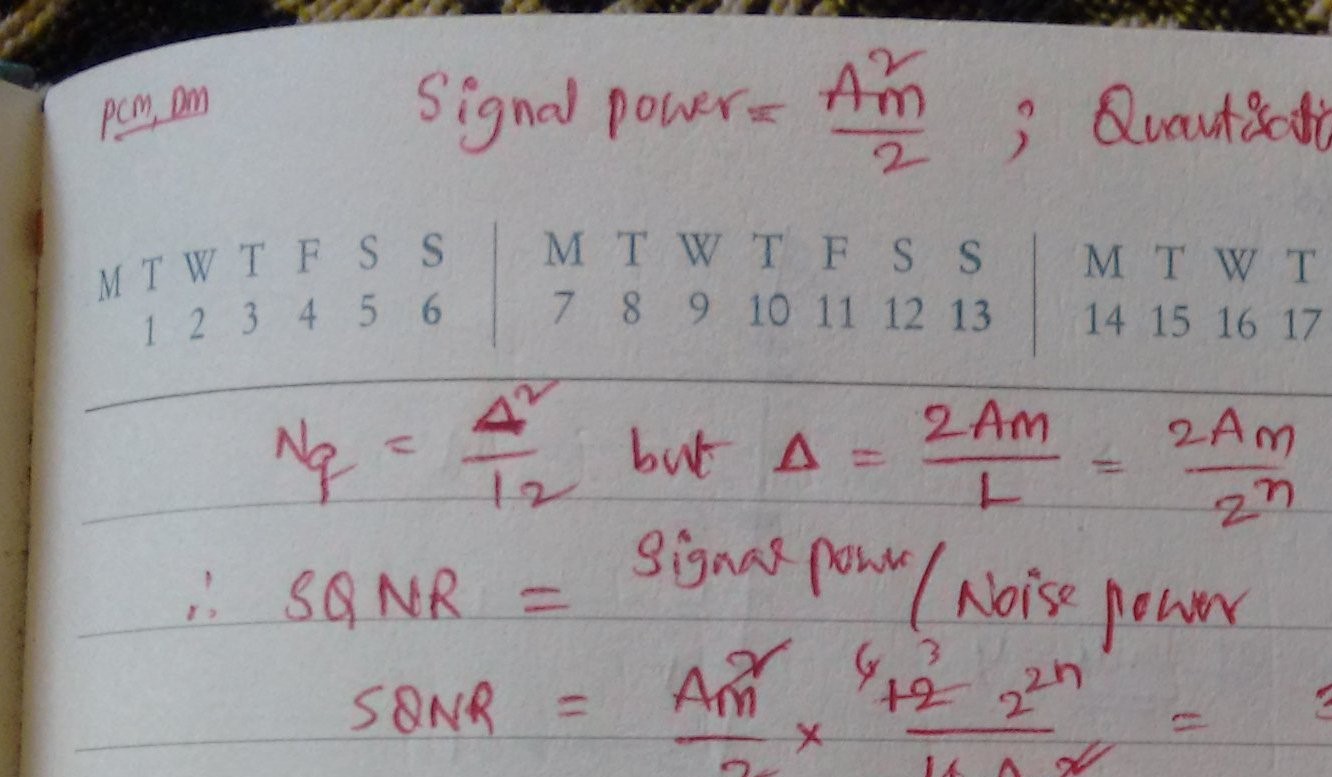 PCM, DM Signal power = Am²/2 ;
M T W T F S S M T W T F S S M T W T
1 2 3 4 5 6 7 8 9 10 11 12 13 14 15 16 17
Nq = Δ²/12 but Δ = 2Am/L = 2Am/2ⁿ
∴ SQNR = Signal power / Noise power
SQNR = Am²/2 × 12 2²ⁿ =